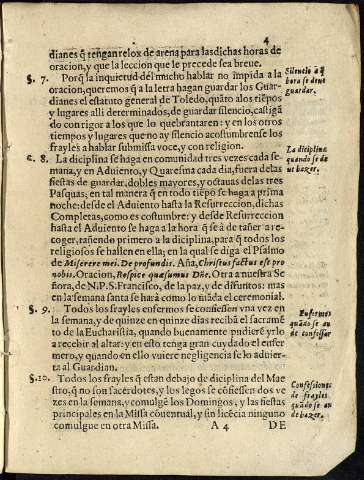 4
dianes q̃ tengan relox de arena para las dichas horas de
oracion, y que la leccion que le precede sea breue.
§. 7. Porq̃ la inquietud del mucho hablar no impida a la
oracion, queremos q̃ a la letra hagan guardar los Guar-
dianes el estatuto general de Toledo, quãto a los tiẽpos
y lugares alli determinados, de guardar silencio, castigã
do con rigor a los que lo quebrantaren: y en los otros
tiempos y lugares que no ay silencio acostumbrense los
frayles a hablar submissa voce, y con religion.
Silencio a q̃
hora se deue
guardar.
§. 8. La diciplina se haga en comunidad tres vezes cada se-
mana, y en Aduiento, y Quaresima cada dia, fuera de las
fiestas de guardar, dobles mayores, y octauas de las tres
Pasquas; en tal manera q̃ en todo tiẽpo se haga a prima
noche: desde el Aduiento hasta la Resurreccion, dichas
Completas, como es costumbre: y desde Resurreccion
hasta el Aduiento se haga a la hora q̃ se à de tañer a re-
coger, tañendo primero a la diciplina, para q̃ todos los
religiosos se hallen en ella; en la qual se diga el Psalmo
de Miserere mei. De profundis. Aña, Christus factus est pro
nobis. Oracion, Respice quæsumus Dñe. Otra a nuestra Se
ñora, de N. P. S. Francisco, de la paz, y de difuntos: mas
en la semana santa se harà como lo mãda el ceremonial.
La diciplina
quando se de
ue hazer.
§. 9. Todos los frayles enfermos se confiessen vna vez en
la semana, y de quinze en quinze dias recibã el sacramẽ
to de la Eucharistia, quando buenamente pudierẽ yr lo
a recebir al altar: y en esto tenga gran cuydado el enfer
mero, y quando en ello vuiere negligencia se lo aduier-
ta al Guardian.
Enfermos
quãdo se an
de confessar
§. 10. Todos los frayles q̃ estan debajo de diciplina del Mae
stro, q̃ no son sacerdotes, y los legos se cõfiessen dos ve
zes en la semana, y comulguẽ los Domingos, y las fiestas
principales en la Missa cõuentual, y sin licẽcia ninguno
comulgue en otra Missa.
Confessiones
de frayles
quãdo se an
de hazer.
A 4 DE